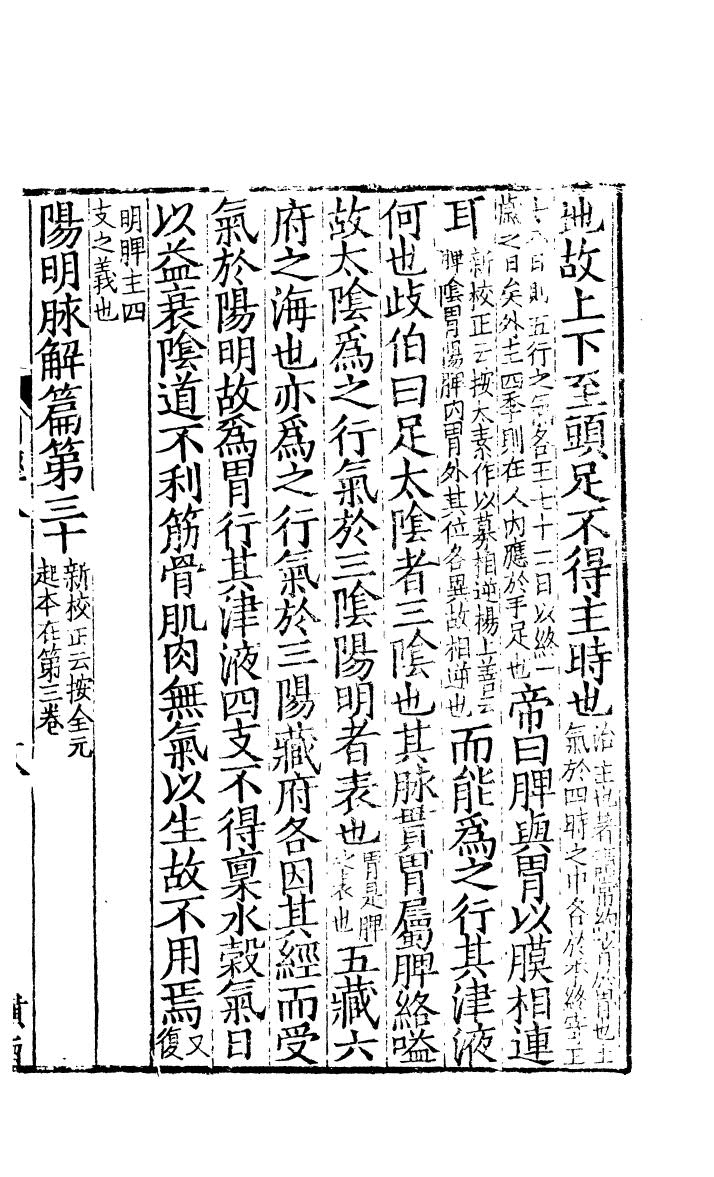 地故上下至頭足不得主時也治主也著謂常約著於胃也土
氣於四時之中各於季終寄王
十八日則五行之氣各王七十二日以終一
歲之日矣外主四季則在人內應於手足也帝曰脾與胃以膜相連
耳新校正云按太素作以募相逆楊上善云
脾陰胃陽脾內胃外其位各異故相逆也而能爲之行其津液
何也歧伯曰足太陰者三陰也其脉貫胃屬脾絡嗌
故太陰爲之行氣於三陰陽明者表也胃是脾
之表也五藏六
府之海也亦爲之行氣於三陽藏府各因其經而受
氣於陽明故爲胃行其津液四支不得稟水穀氣日
以益衰陰道不利筋骨肌肉無氣以生故不用焉又
復
明脾主四
支之義也
陽明脉解篇第三十新校正云按全元
起本在第三卷